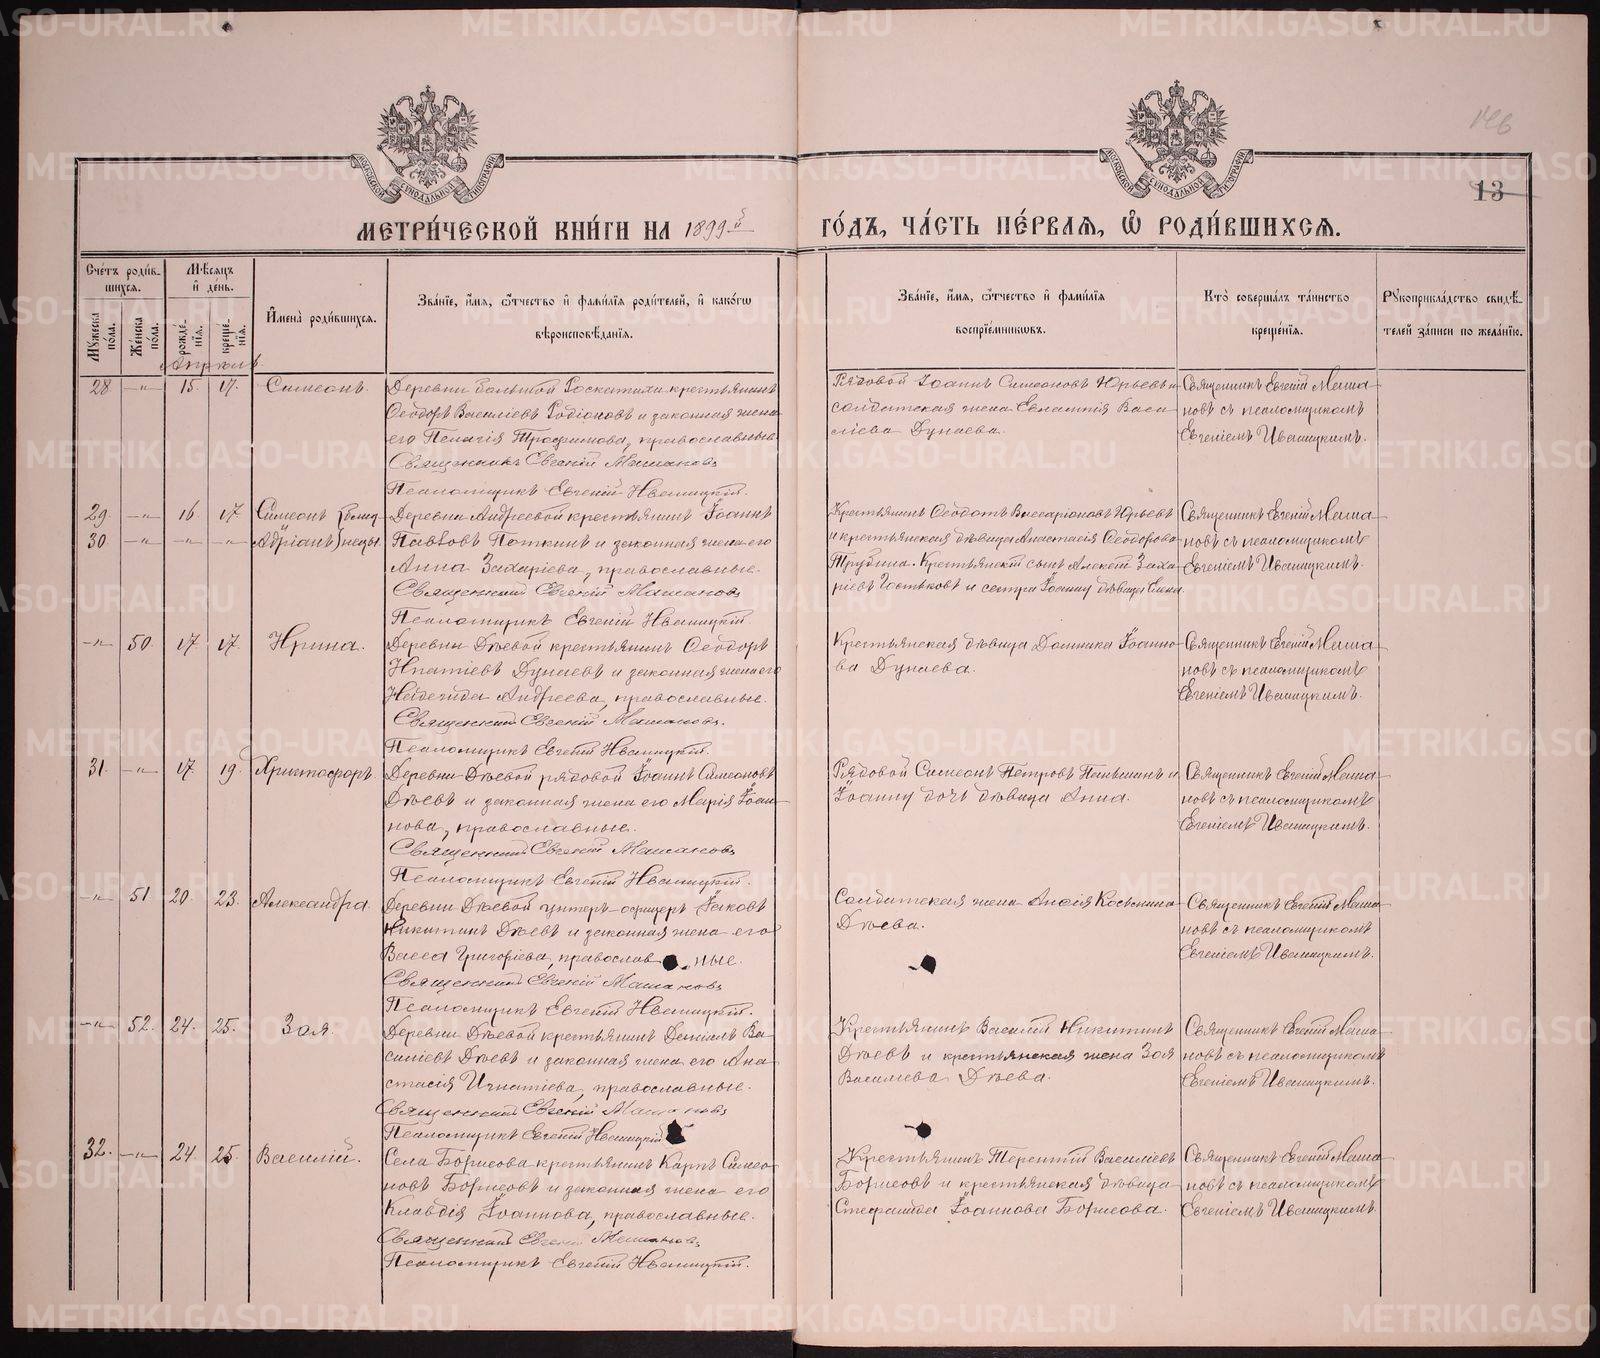 METRIKI.GASO-URAL.RU
146
13
МОСКОВСКОЙ СѴНОДАЛЬНОЙ ТИПОГРАФІИ
МОСКОВСКОЙ СѴНОДАЛЬНОЙ ТИПОГРАФІИ
МЕТРИ́ЧЕСКОЙ КНИ́ГИ НА 1899й ГО́ДЪ, ЧА́СТЬ ПЕ́РВАЯ, Ѡ РОДИ́ВШИХСЯ.
Сче́тъ роди́вшихся.
Мꙋ́жеска по́ла.
Же́нска по́ла.
Мѣ́сяцъ и҆ де́нь.
рожде́нїя.
креще́нїя.
И҆мена̀ роди́вшихся.
Зва́нїе, и҆́мя, ѻ҆́тчество и҆ фами́лїя роди́телей, и҆ како́гѡ вѣроисповѣ́данїя.
Зва́нїе, и҆́мя, ѻ҆́тчество и҆ фами́лїя воспрїе́мниковъ.
Кто̀ соверша́лъ та́инство креще́нїя.
Рꙋкоприкла́дство свидѣ́телей за́писи по жела́нїю.
Апрѣль
28 -"- 15. 17. Симеонъ.
Деревни Большой крестьянинъ
Ѳеодоръ Василіевъ Родіоновъ и законная жена
его Пелагія Трофимова, православные.
Священникъ Евгеній Машановъ
Псаломщикъ Евгеній Ивашицкій.
Рядовой Іоаннъ Симеоновъ Юрьевъ и
солдатская жена Евлампія Васи-
ліева Дунаева.
Священникъ Евгеній Маша-
новъ съ псаломщикомъ
Евгеніемъ Ивашицкимъ.
29. -"- 16. 17 Симеонъ } близ-
30. -"- -"- -"- Адріанъ } нецы.
Деревни Андреевой крестьянинъ Іоаннъ
Павловъ Поткинъ и законная жена его
Анна Захаріева, православные.
Священникъ Евгеній Машановъ
Псаломщикъ Евгеній Ивашицкій.
Крестьянинъ Ѳеодотъ Виссаріоновъ Юрьевъ
и крестьянская дѣвица Анастасія Ѳеодорова
Трубина. Крестьянскій сынъ Алексій Заха-
ріевъ и сестра Іоанну дѣвица Елена
Священникъ Евгеній Маша-
новъ съ псаломщикомъ
Евгеніемъ Ивашицкимъ.
-"- 50. 17 17. Ирина.
Деревни Дѣевой крестьянинъ Ѳеодоръ
Ипатіевъ Дунаевъ и законная жена его
Надежда Андреева, православные.
Священникъ Евгеній Машановъ.
Псаломщикъ Евгеній Ивашицкій.
Крестьянская дѣвица Домника Іоанно-
ва Дунаева.
Священникъ Евгеній Маша-
новъ съ псаломщикомъ
Евгеніемъ Ивашицкимъ.
31. -"- 17 19. Христофоръ.
Деревни Дѣевой рядовой Іоаннъ Симеоновъ
Дѣевъ и законная жена его Марія Іоан-
нова, православные.
Священникъ Евгеній Машановъ
Псаломщикъ Евгеній Ивашицкій.
Рядовой Симеонъ Петровъ и
Іоанну дочь дѣвица Анна.
Священникъ Евгеній Маша-
новъ съ псаломщикомъ
Евгеніемъ Ивашицкимъ.
-"- 51 20. 23. Александра.
Деревни Дѣевой унтеръ-офицеръ Іаковъ
Никитинъ Дѣевъ и законная жена его
Васса Григоріева, православ ные.
Священникъ Евгеній Машановъ
Псаломщикъ Евгеній Ивашицкій.
Солдатская жена Анисія Косьмина
Дѣева.
Священникъ Евгеній Маша-
новъ съ псаломщикомъ
Евгеніемъ Ивашицкимъ.
-"- 52. 24. 25. Зоя.
Деревни Дѣевой крестьянинъ Даніилъ Ва-
силіевъ Дѣевъ и законная жена его Ана-
стасія Игнатіева, православные.
Священникъ Евгеній Машановъ
Псаломщикъ Евгеній Ивашицкій
Крестьянинъ Василій Никитинъ
Дѣевъ и крестьянская жена Зоя
Василіева Дѣева.
Священникъ Евгеній Маша-
новъ съ псаломщикомъ
Евгеніемъ Ивашицкимъ.
32. -"- 24. 25 Василій.
Села Борисова крестьянинъ Карпъ Симео-
новъ Борисовъ и законная жена его
Клавдія Іоаннова, православные.
Священникъ Евгеній Машановъ
Псаломщикъ Евгеній Ивашицкій.
Крестьянинъ Терентій Василіевъ
Борисовъ и крестьянская дѣвица
Стефанида Іоаннова Борисова.
Священникъ Евгеній Маша-
новъ съ псаломщикомъ
Евгеніемъ Ивашицкимъ.